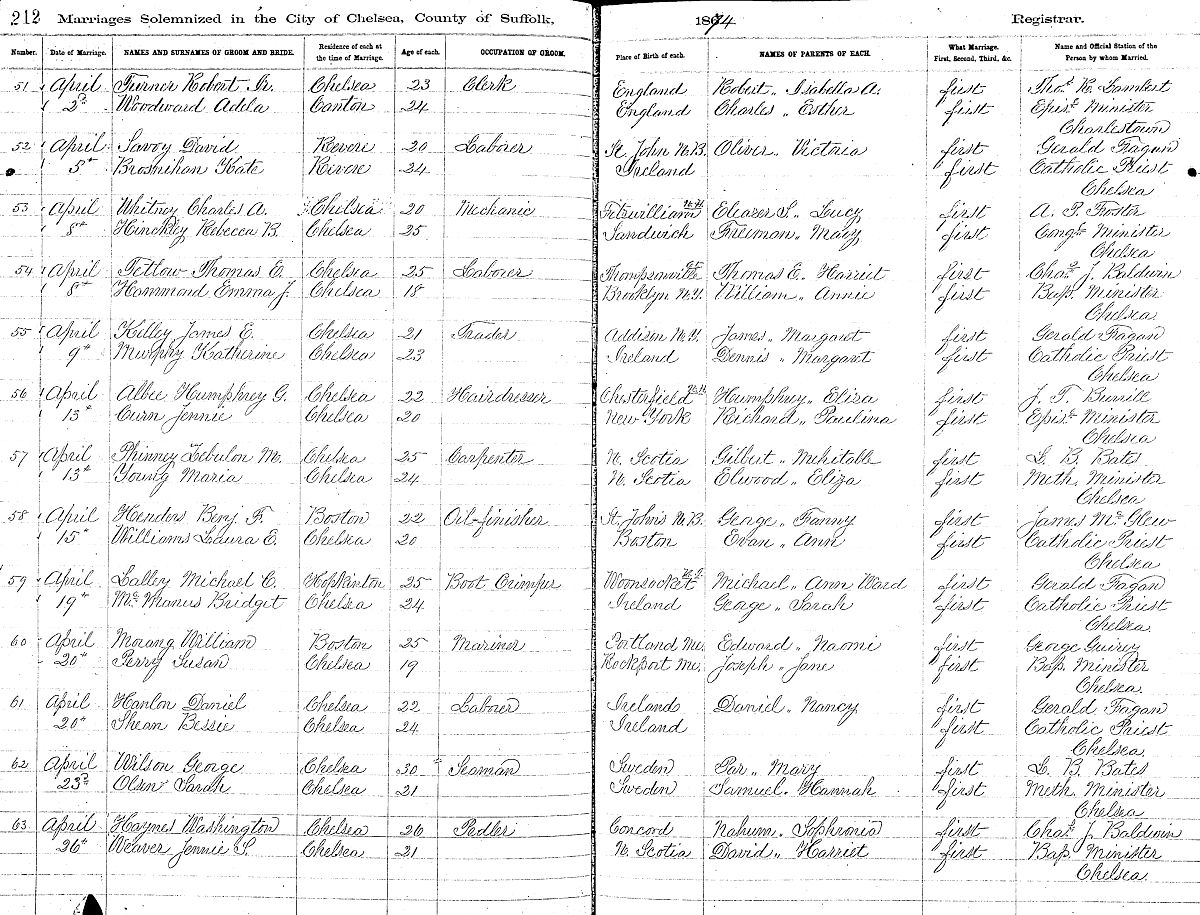 212 Marriages Solemnized in the City of Chelsea, County of Suffolk, 1874 Registrar.
Number. Date of Marriage. NAMES AND SURNAMES OF GROOM AND BRIDE. Residence of each at the time of Marriage. Age of each. OCCUPATION OF GROOM. Place of Birth of each. NAMES OF PARENTS OF EACH. What Marriage. First, Second, Third, &c. Name and Official Station of the Person by whom Married.
51 April Turner Robert Jr. Chelsea 23 Clerk England Robert " Isabella A. first Thos. R. Lambert
2d Woodward Adela Canton 24 England Charles " Esther first Epis. Minister
Charlestown
52 April Savoy David Revere 20 Laborer St. John N.B. Oliver " Victoria first Gerald Fagan
5th Brosnihan Kate Revere 24 Ireland first Catholic Priest
Chelsea
53 April Whitney Charles A. Chelsea 20 Mechanic Fitzwilliam N.H. Eleazer S. " Lucy first A. P. Foster
8th Hinckley Rebecca B. Chelsea 25 Sandwich Freeman " Mary first Congl. Minister
Chelsea
54 April Tetlow Thomas E. Chelsea 25 Laborer Thompsonville Ct. Thomas E. " Harriet first Chas. J. Baldwin
8th Hammond Emma J. Chelsea 18 Brooklyn N.Y. William " Annie first Bap. Minister
Chelsea
55 April Kelley James E. Chelsea 21 Trader Addison N.Y. James " Margaret first Gerald Fagan
9th Murphy Katherine Chelsea 23 Ireland Dennis " Margaret first Catholic Priest
Chelsea
56 April Albee Humphrey G. Chelsea 22 Hairdresser Chesterfield N.H. Humphrey " Eliza first J. T. Burrill
13th Curn Jennie Chelsea 20 New York Richard " Paulina first Epis. Minister
Chelsea
57 April Phinney Zebulon M. Chelsea 25 Carpenter N. Scotia Gilbert " Mehitable first L. B. Bates
13th Young Maria Chelsea 24 N. Scotia Elwood " Eliza first Meth. Minister
Chelsea
58 April Henders Benj. F. Boston 22 Oil-finisher St. Johns N.B. George " Fanny first James McGlew
15th Williams Laura E. Chelsea 20 Boston Evan " Ann first Catholic Priest
Chelsea
59 April Lalley Michael C. Hopkinton 25 Boot Crimper Woonsocket Michael " Ann Ward first Gerald Fagan
19th McManus Bridget Chelsea 24 Ireland George " Sarah first Catholic Priest
Chelsea
60 April Morang William Boston 25 Mariner Portland Me. Edward " Naomi first George
20th Perry Susan Chelsea 19 Rockport Me. Joseph " Jane first Bap. Minister
Chelsea
61 April Hanlon Daniel Chelsea 22 Laborer Ireland Daniel " Nancy first Gerald Fagan
20th Shean Bessie Chelsea 24 Ireland first Catholic Priest
Chelsea
62 April Wilson George Chelsea 30 Seaman Sweden Par " Mary first L. B. Bates
23d Olsen Sarah Chelsea 21 Sweden Samuel " Hannah first Meth. Minister
Chelsea
63 April Haynes Washington Chelsea 26 Pedler Concord Nahum " Sophronia first Chas. J. Baldwin
26th Weaver Jennie S. Chelsea 21 N. Scotia David " Harriet first Bap. Minister
Chelsea